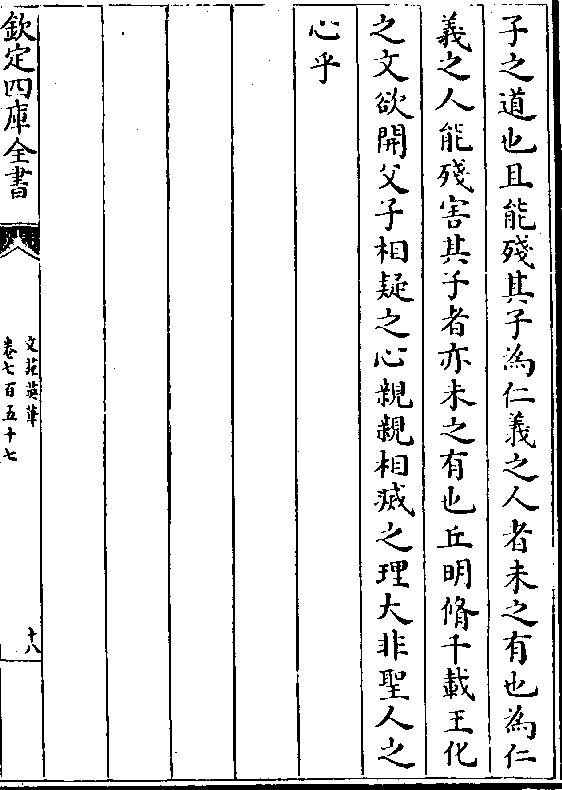 子之道也且能殘其子為仁義之人者未之有也為仁
義之人能殘害其子者亦未之有也丘明脩千載王化
之文欲開父子相疑之心親親相滅之理大非聖人之
心乎
欽定四庫全書
文苑英華
卷七百五十七
十八